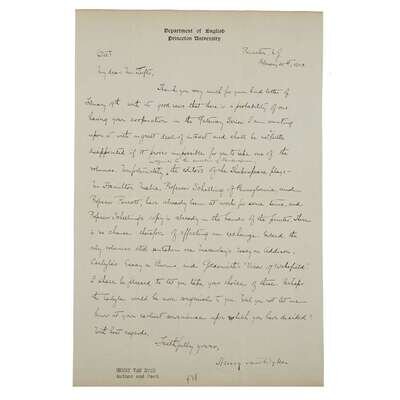 Department of English
Princeton University
Princeton, N.J.
February 20th,
My dear
Thank you very much for your kind letter of
February 19th with its good news that there is a probability of our
having your cooperation in the Gateway Series. I am counting
upon it with a great deal of interest and shall be
disappointed if it proves impossible for you to take one of the
volumes. Unfortunately, the editors of the Shakespeare plays
Professor Schelling of Pennsylvania, and
Professor have already been at work for some time, and
Professor Schelling's copy is already in the hands of the printer. There
is no chance therefore of effecting an exchange. Indeed the
only volumes still are Macaulay's Essay on Addison,
Carlyle's Essay on Burns, and Goldsmith's "Vicar of Wakefield".
I shall be pleased to let you take your choice of these. Perhaps
the Carlyle would be more to you. Will you not let me
know at your earliest convenience upon which you have decided?
With best regards,
Faithfully yours,
Henry van Dyke
HENRY VAN DYKE
Author and Poet